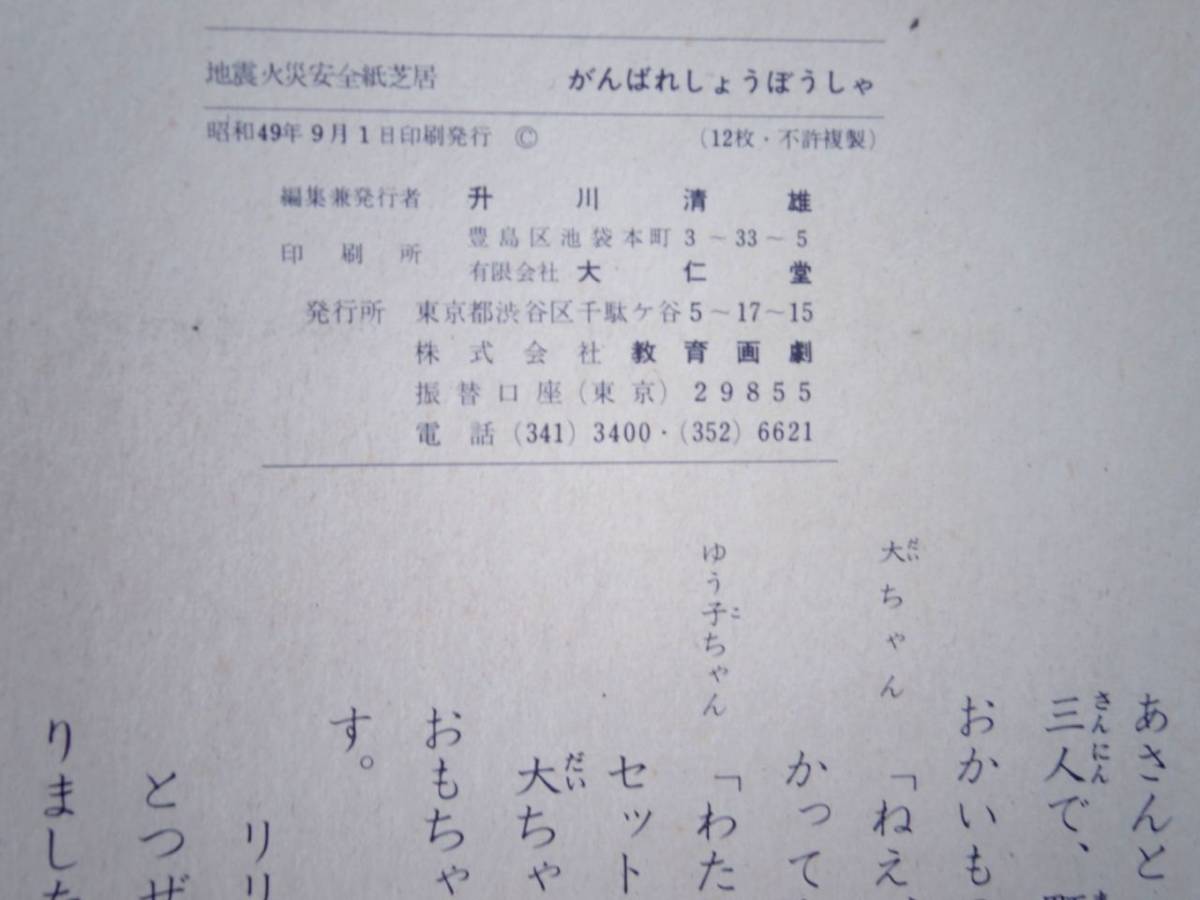 地震火災安全紙芝居 がんばれしょうぼうしゃ
昭和49年9月1日印刷発行 © (12枚・不許複製)
編集兼発行者 升川清雄
印刷所 豊島区池袋本町3~33~5
有限会社 大仁堂
発行所 東京都渋谷区千駄ケ谷5~17~15
株式会社 教育画劇
振替口座(東京)29855
電話(341)3400・(352)6621
あさんと
三人で、
さんにん
おかいも
大ちゃん 「ねえ
だい
かって
ゆう子ちゃん 「わた
こ
セット
大ちゃ
だい
おもちゃ
す。
リリ
とつぜ
りました